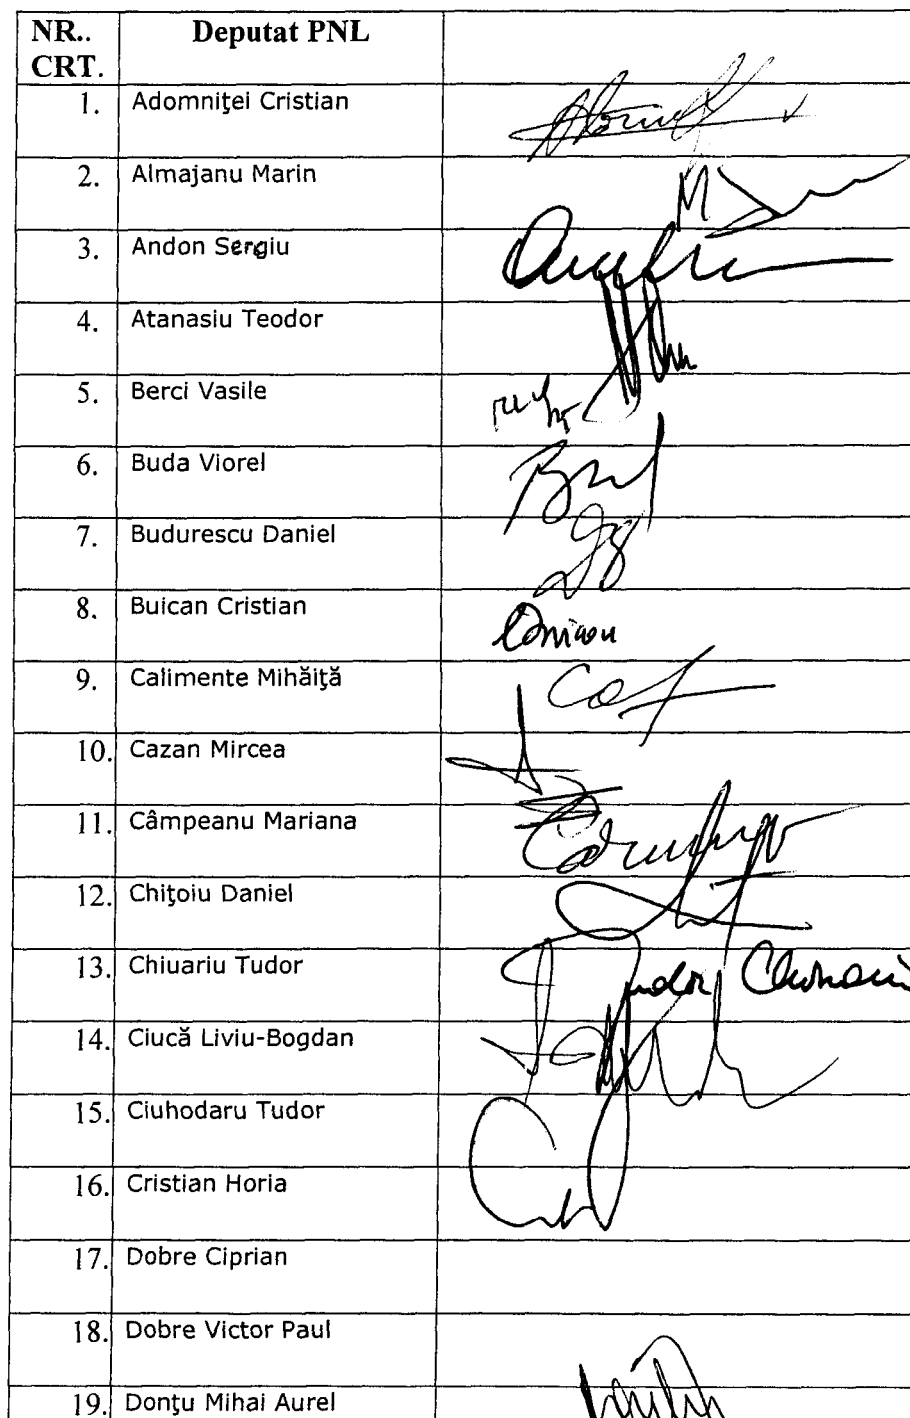 NR.. Deputat PNL
CRT.
1. Adomniţei Cristian
2. Almajanu Marin
3. Andon Sergiu
4. Atanasiu Teodor
5. Berci Vasile
6. Buda Viorel
7. Budurescu Daniel
8. Buican Cristian
9. Calimente Mihăiţă
10. Cazan Mircea
11. Câmpeanu Mariana
12. Chiţoiu Daniel
13. Chiuariu Tudor
14. Ciucă Liviu-Bogdan
15. Ciuhodaru Tudor
16. Cristian Horia
17. Dobre Ciprian
18. Dobre Victor Paul
19. Donţu Mihai Aurel